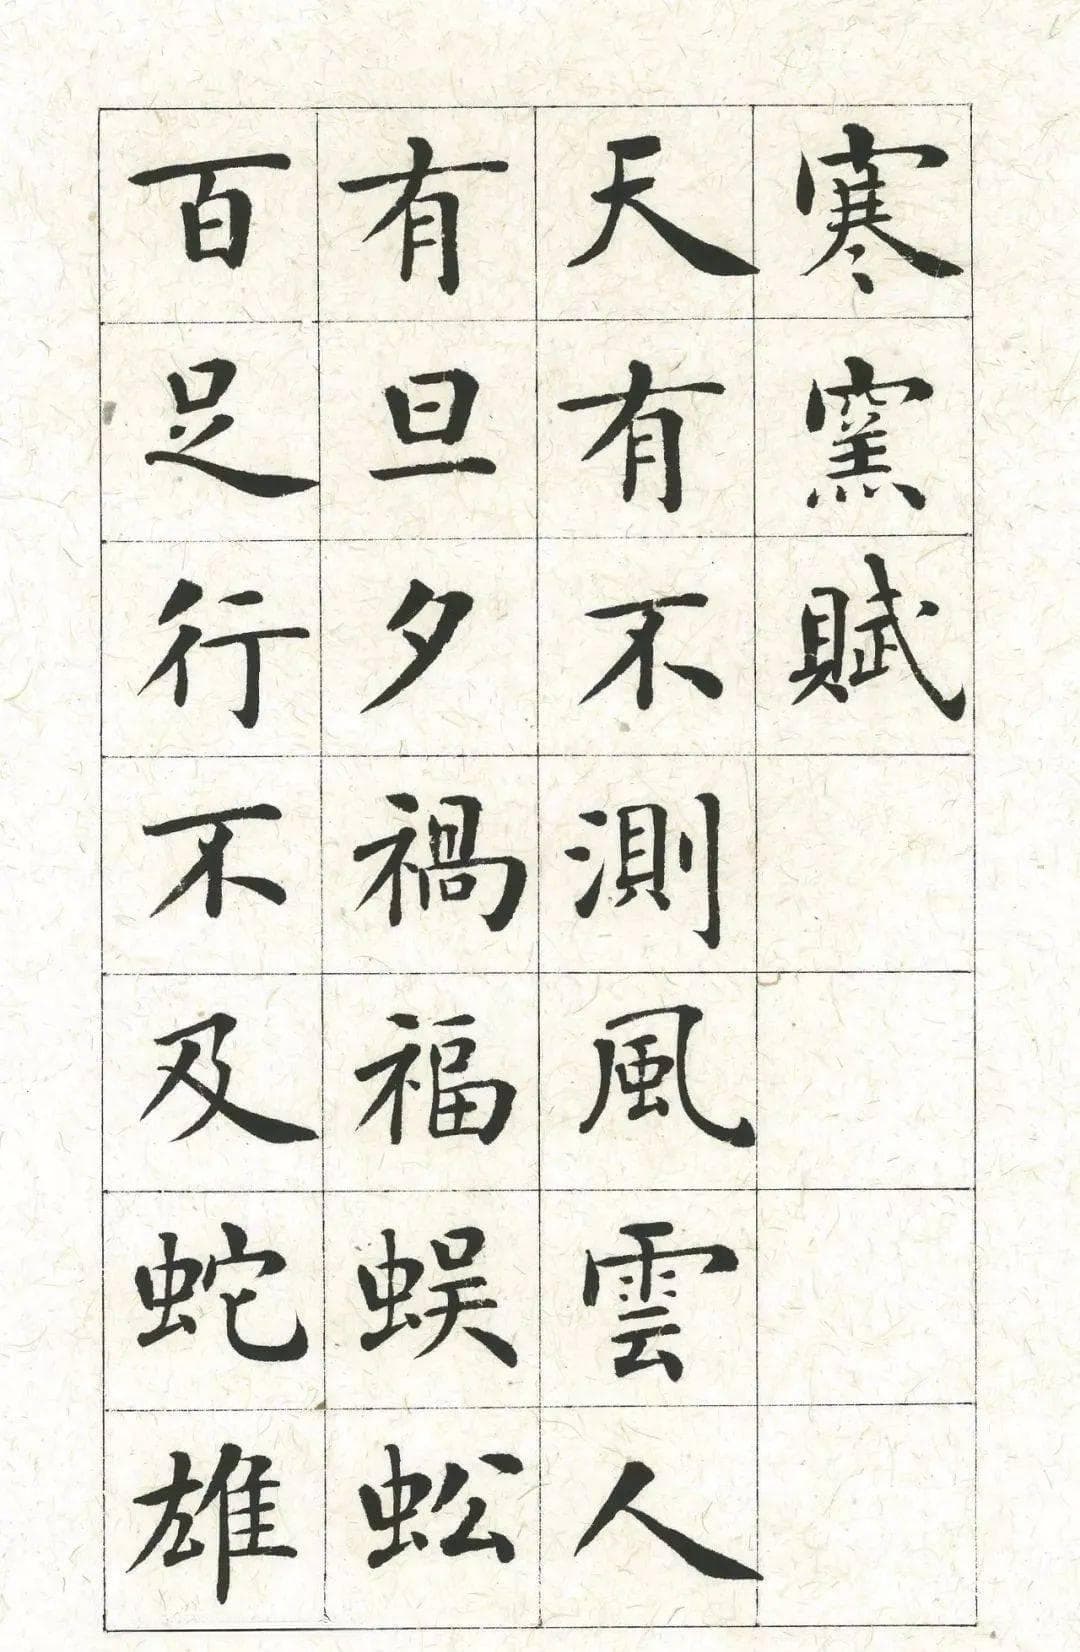 寒窯賦
天有不測風雲人
有旦夕禍福蜈蚣
百足行不及蛇雄